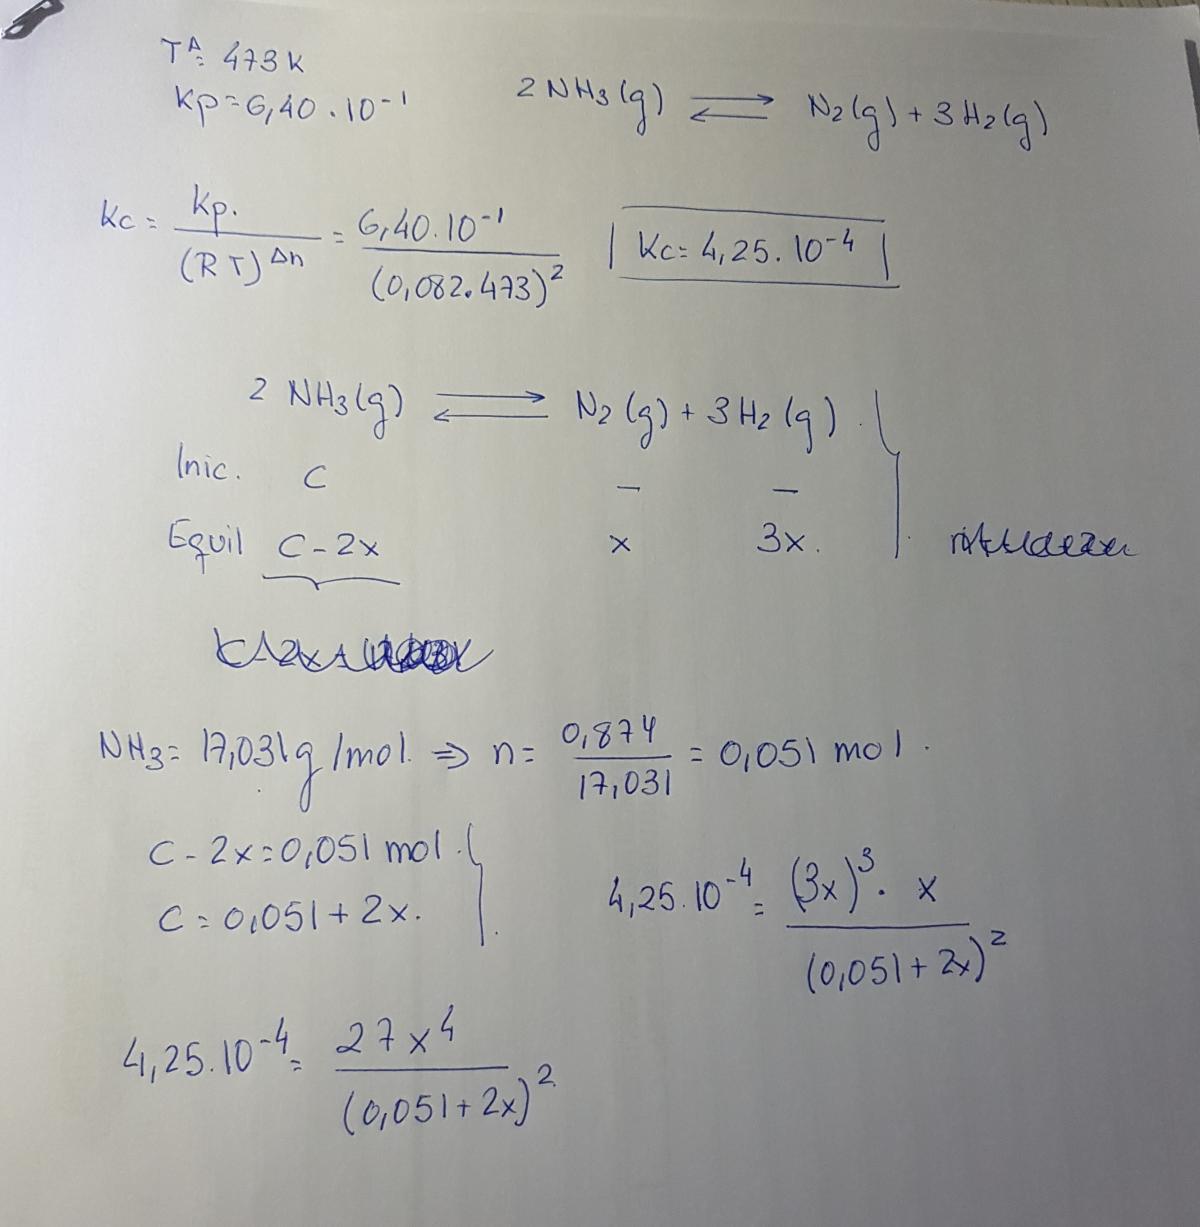 Tª= 473K
Kp=6,40.10⁻¹
2 NH3(g) ⇌ N2(g) + 3H2(g)
Kc = Kp. / (RT)^Δn = 6,40.10⁻¹ / (0,082.473)² | Kc= 4,25.10⁻⁴ |
2 NH3(g) ⇌ N2(g) + 3H2(g).
Inic. C — —
Equil C-2x x 3x.
NH3= 17,031g/mol. ⇒ n= 0,874 / 17,031 = 0,051 mol.
C-2x=0,051 mol.
C=0,051+2x.
4,25.10⁻⁴= (3x)³. x / (0,051+2x)²
4,25.10⁻⁴= 27x⁴ / (0,051+2x)²